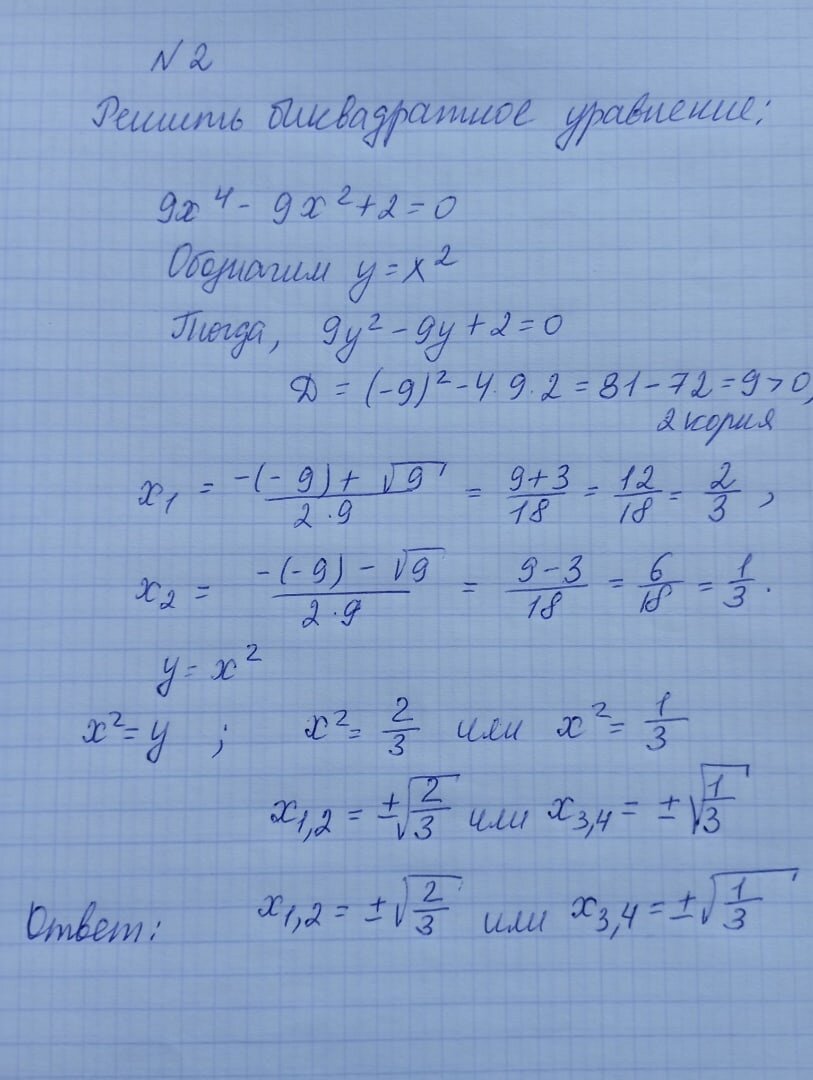 N 2
Решить биквадратное уравнение:
9x⁴ - 9x² + 2 = 0
Обозначим y = x²
Тогда, 9y² - 9y + 2 = 0
D = (-9)² - 4 · 9 · 2 = 81 - 72 = 9 > 0,
2 корня
x₁ = (-(-9) + √9)/(2 · 9) = (9+3)/18 = 12/18 = 2/3 ,
x₂ = (-(-9) - √9)/(2 · 9) = (9-3)/18 = 6/18 = 1/3 .
y = x²
x² = y ; x² = 2/3 или x² = 1/3
x₁,₂ = ±√(2/3) или x₃,₄ = ±√(1/3)
Ответ: x₁,₂ = ±√(2/3) или x₃,₄ = ±√(1/3)